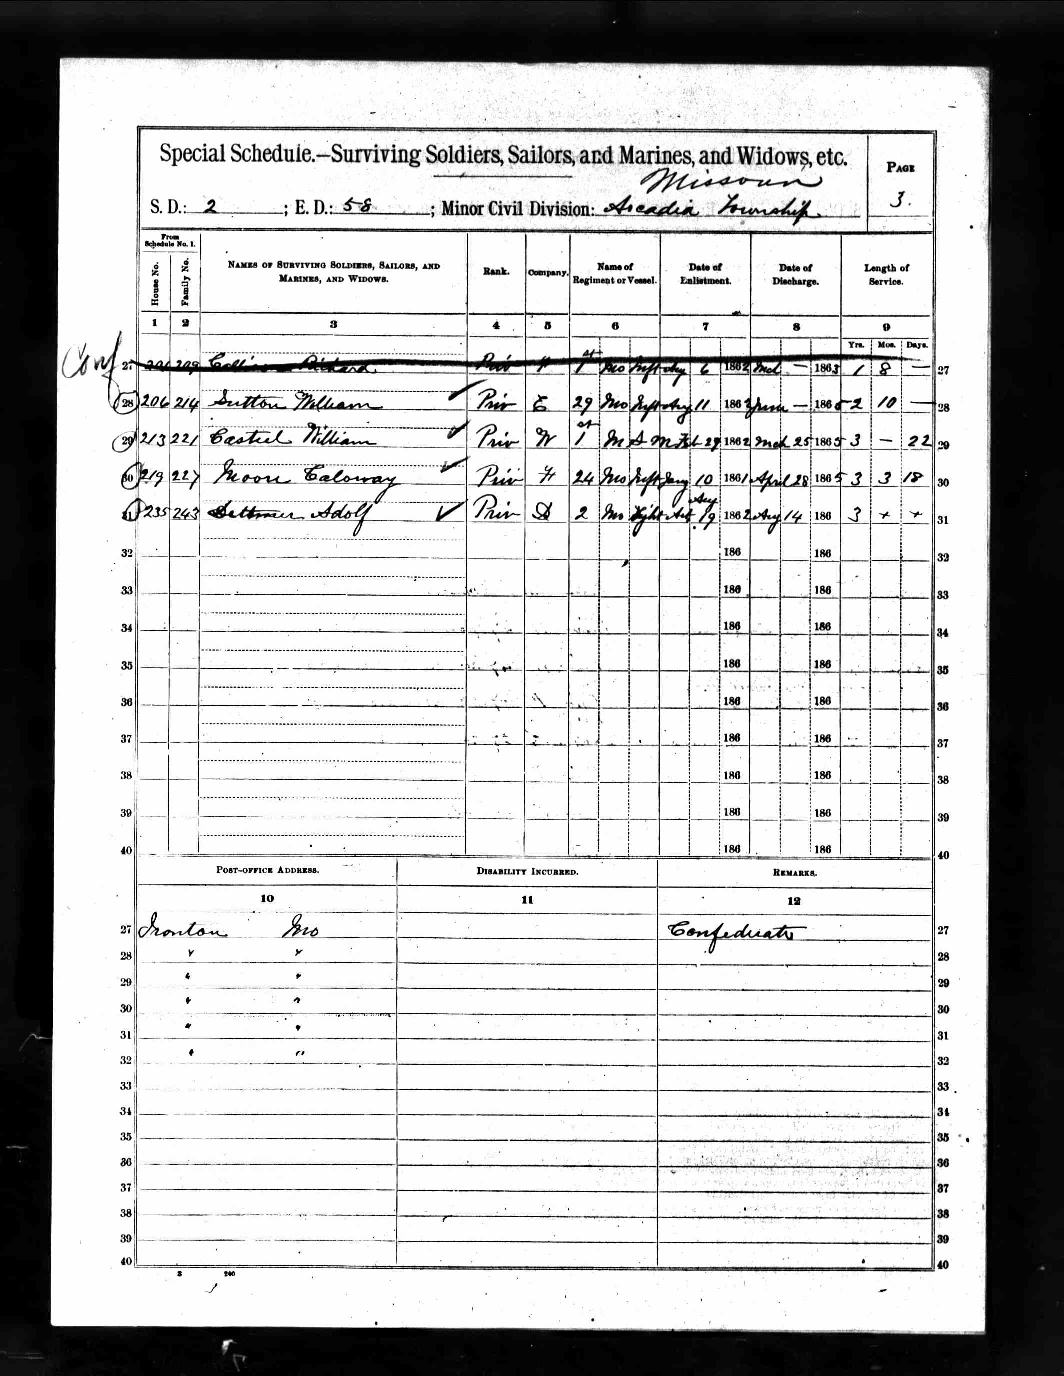 Special Schedule.—Surviving Soldiers, Sailors, and Marines, and Widows, etc.
Missouri
PAGE
3.
S. D.: 2 ; E. D.: 58 ; Minor Civil Division: Arcadia Township
From Schedule No. 1.
House No. Family No. NAMES OF SURVIVING SOLDIERS, SAILORS, AND MARINES, AND WIDOWS. Rank. Company. Name of Regiment or Vessel. Date of Enlistment. Date of Discharge. Length of Service.
1 2 3 4 5 6 7 8 9
Yrs. Mos. Days.
Conf
27 209 Richard Priv 1st Mo Inft 6 1862 Mch — 1863 1 8 — 27
28 206 214 Sutton William Priv E 29 Mo Inft Aug 11 1862 June — 1865 2 10 — 28
29 213 221 Casteel William Priv 1st M S M Feb 29 1862 Mch 25 1865 3 — 22 29
30 219 227 Moore Caloway Priv 24 Mo Inft Jany 10 1861 April 28 1865 3 3 18 30
31 235 243 Adolf Priv D 2 Mo Light Art Aug 19 1862 Aug 14 186 3 31
32 186 186 32
33 186 186 33
34 186 186 34
35 186 186 35
36 186 186 36
37 186 186 37
38 186 186 38
39 186 186 39
40 186 186 40
POST-OFFICE ADDRESS. DISABILITY INCURRED. REMARKS.
10 11 12
27 Ironton Mo Confederate 27
28 " " 28
29 " " 29
30 " " 30
31 " " 31
32 " " 32
33 33
34 34
35 35
36 36
37 37
38 38
39 39
40 40
240